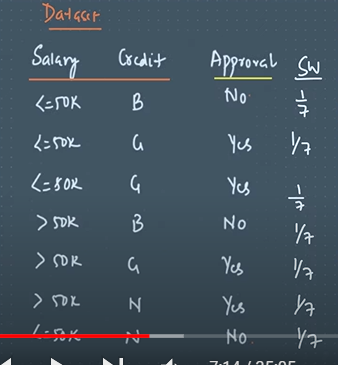 Dataset
Salary Credit Approval SW
<=50K B No 1/7
<=50K G Yes 1/7
<=50K G Yes 1/7
>50K B No 1/7
>50K G Yes 1/7
>50K N Yes 1/7
<=50K N No 1/7